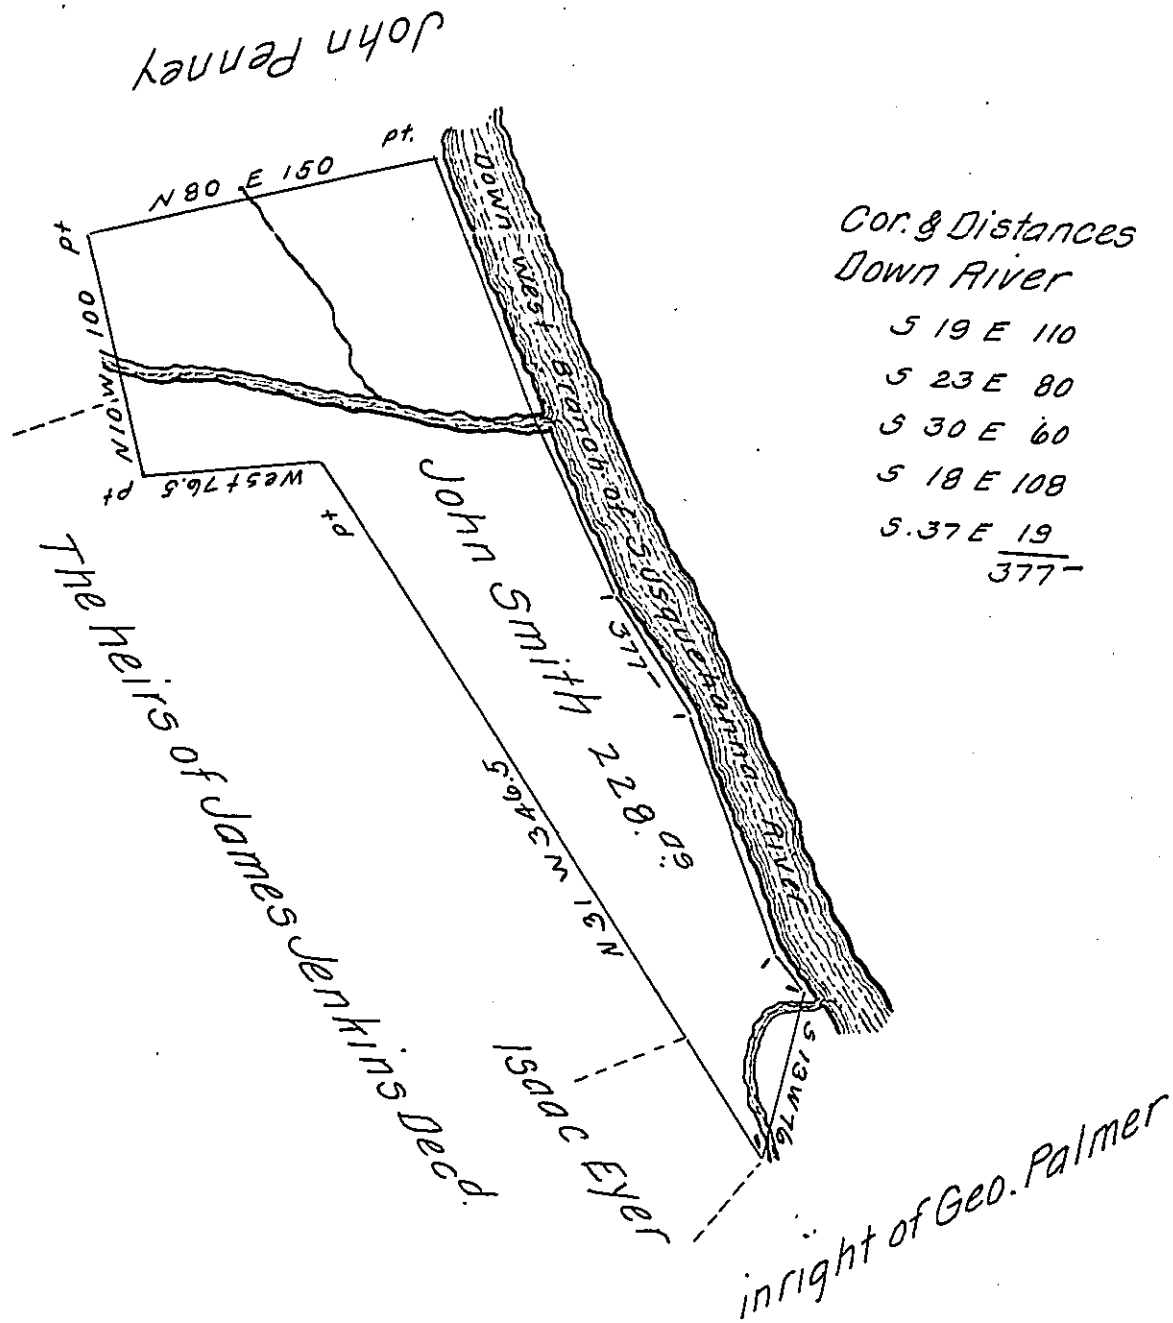 John Penney
pt.
N 80 E 150
pt
N10W 100
pt
West 76.5
pt
Down West Branch of Susquehanna River
Cor. & Distances
Down River
S 19 E 110
S 23 E 80
S 30 E 60
S 18 E 108
S.37 E 19
377-
377-
John Smith 228.
N 31 W 346.5
The heirs of James Jenkins Decd.
Isaac Eyer
S 13 W 76
inright of Geo. Palmer